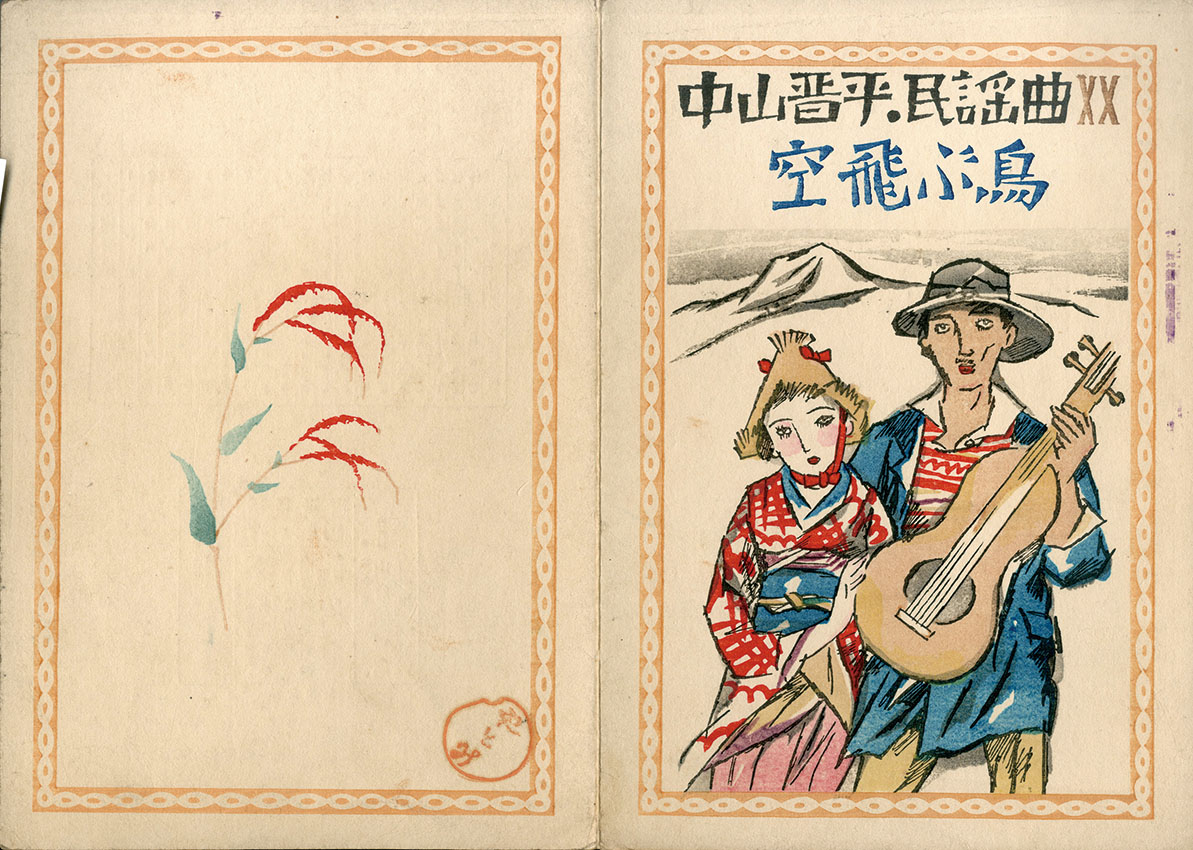 中山晋平.民謡曲XX
空飛ぶ鳥